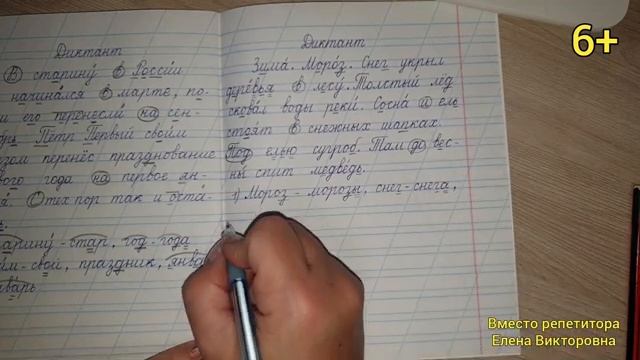 Диктант
В старину в России
начинался в марте, по-
и его перенесли на сен-
Пётр Первый своим
зом перенёс празднование
вого года на первое ян-
я. С тех пор так и оста-
старину - стар, год - года
им - свой, праздник, янва
варь
Диктант
Зима. Мороз. Снег укрыл
деревья в лесу. Толстый лёд
сковал воды реки. Сосна и ель
стоят в снежных шапках.
Под елью сугроб. Там до вес-
ны спит медведь.
1) Мороз - морозы, снег - снега,
6+
Вместо репетитора
Елена Викторовна